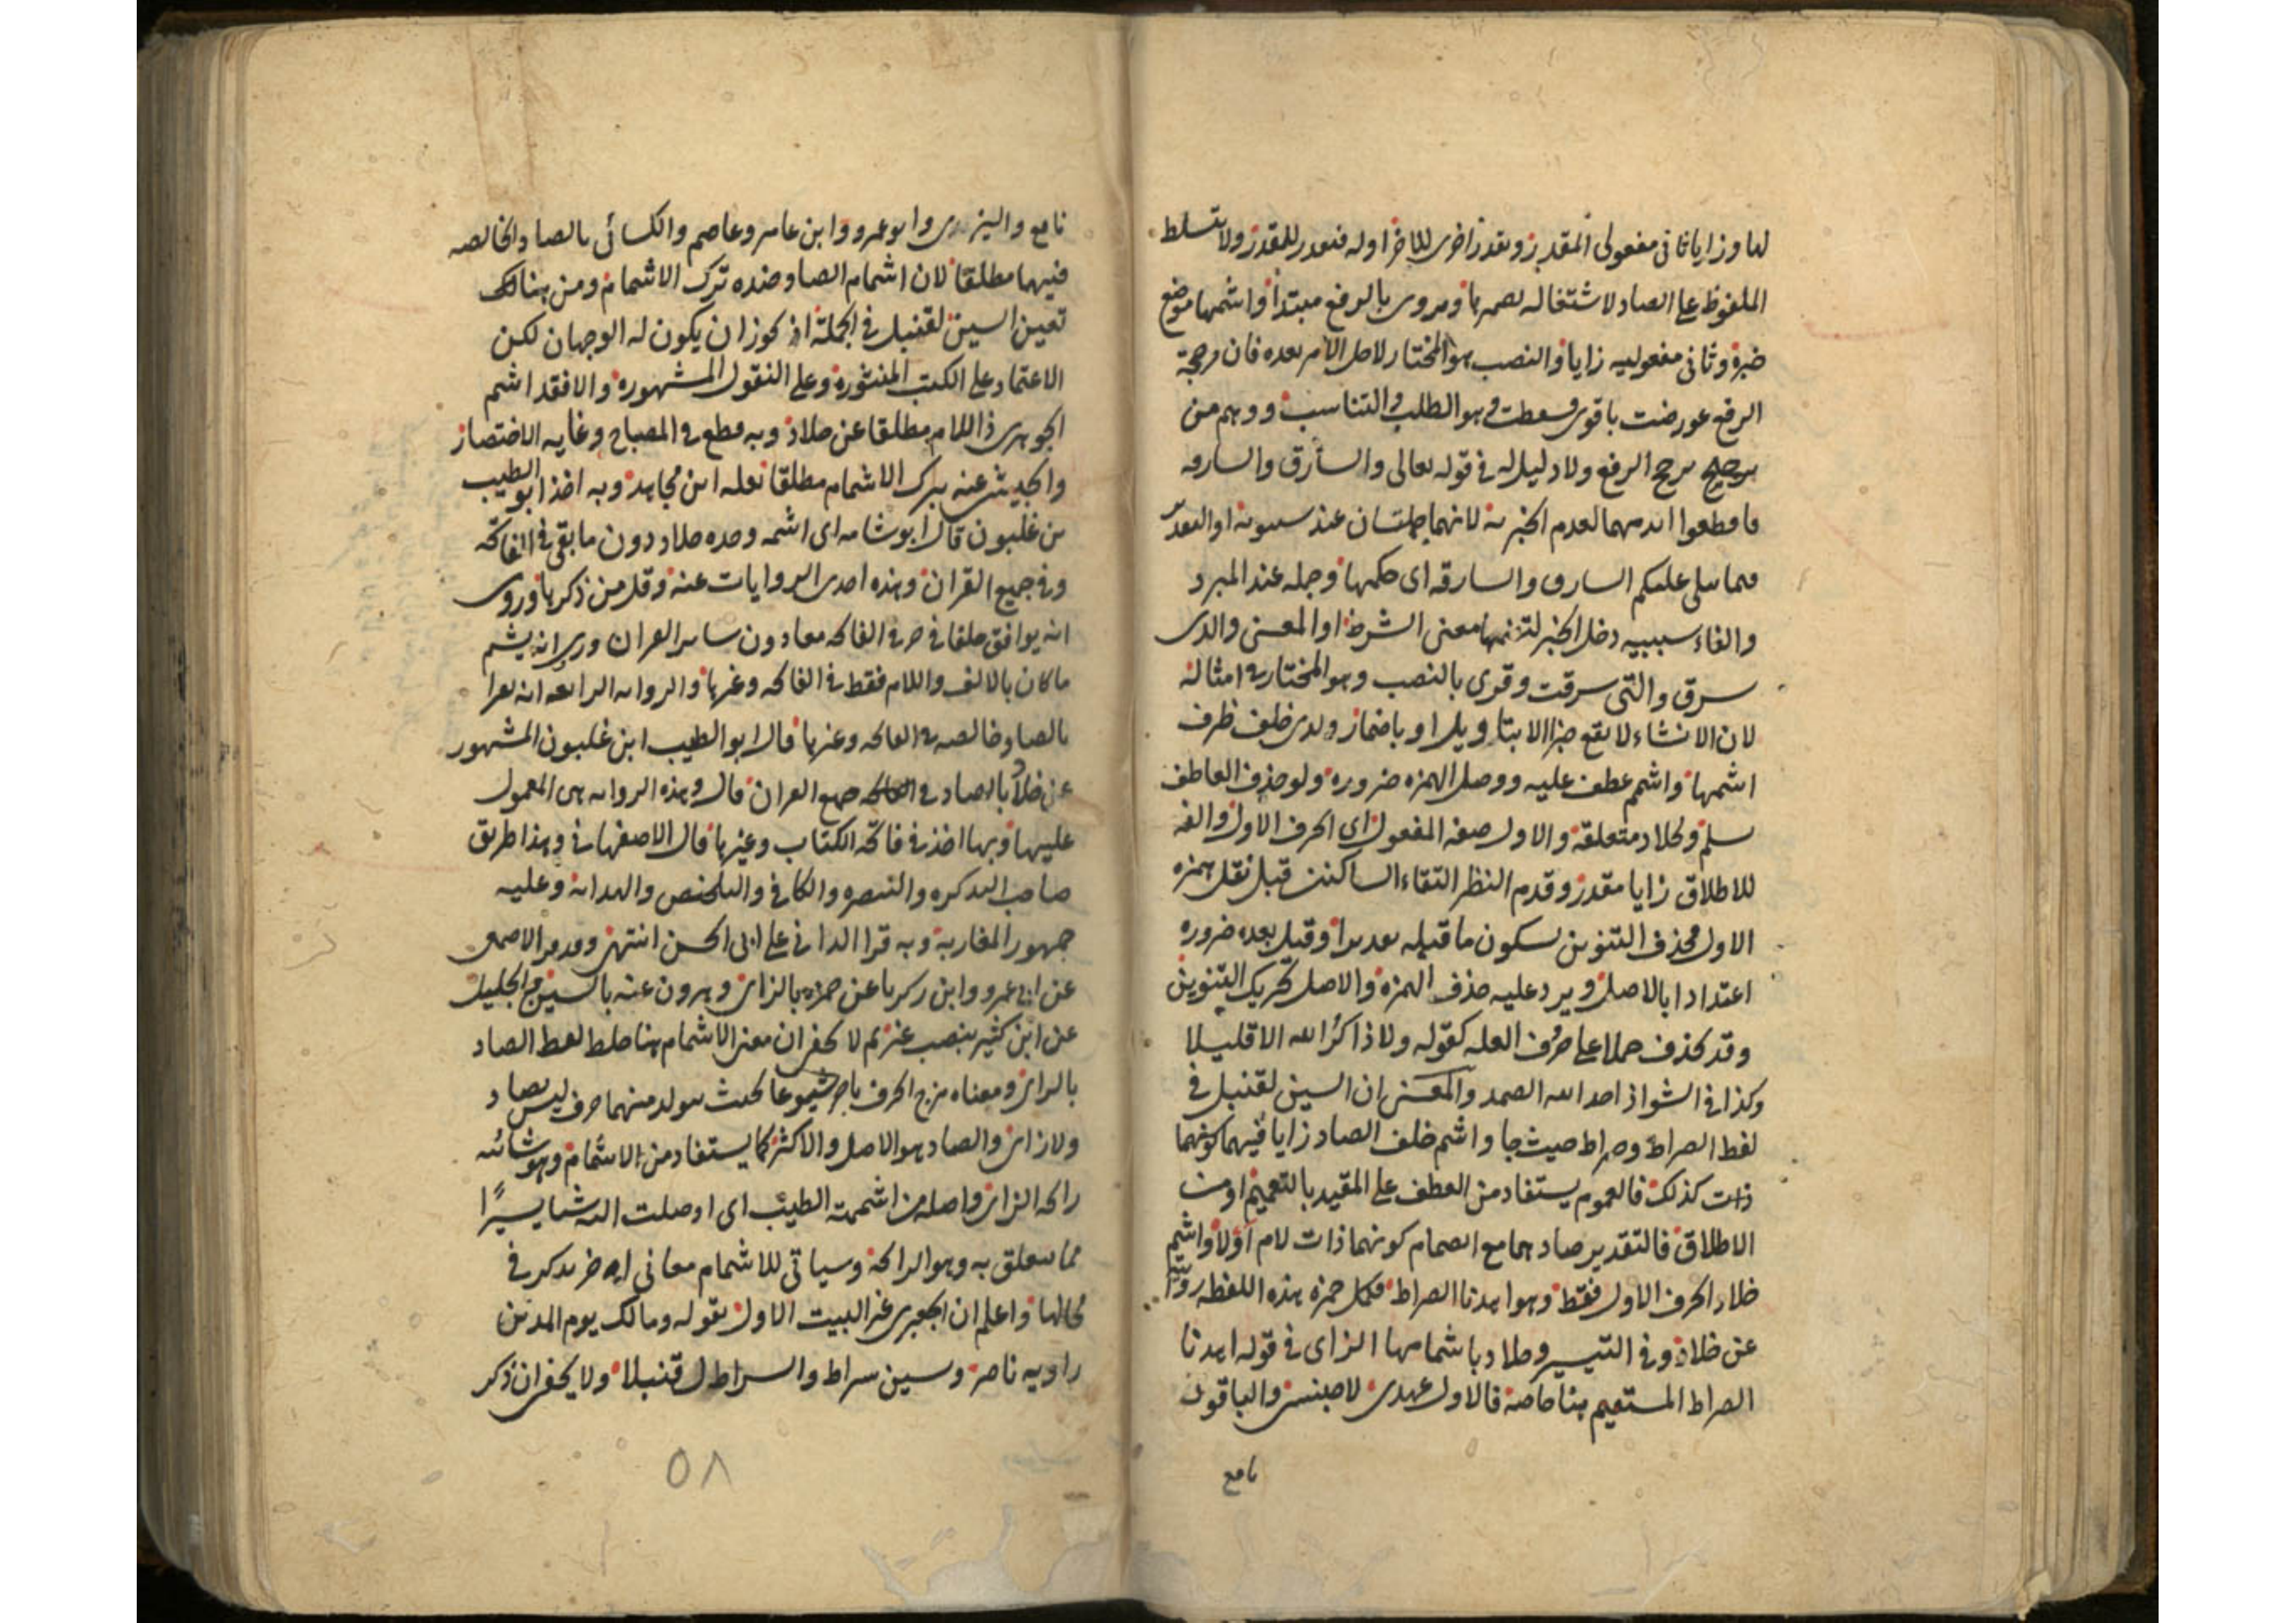 لها وزايا ثاني مفعولي المقدر وتقدر اخرى للاخر اوله فتعدر للمقدر ولا تسلط
الملفوظ على الصاد لاشتغاله بضميرها ومروى بالرفع مبتدا واشمها موضع
خبره وثاني مفعوليه زايا والنصب هو المختار لاصل الامر بعده فان مرجحة
الرفع عورضت باقوى وسقطت وهو الطلب والتناسب ووهم من
يرجح الرفع ولا دليل له في قوله تعالى والسارق والسارقة
فاقطعوا ايديهما لعدم الخبرية لانهما جملتان عند سيبويه او التقدير
مما يتلى عليكم السارق والسارقة اى حكمها وجملة عند المبرد
والفاء سببيه دخل الخبر لتضمنها معنى الشرط او المعنى والذى
سرق والتى سرقت وقرى بالنصب وهو المختار في امثاله
لان الانشاء لا يقع خبرا الا بتاويل او باضمار ولدى خلف ظرف
اشمها واشمم عطف عليه ووصل الهمزة ضرورة ولو حذف العاطف
سلم ولخلاد متعلقه والاول صفة المفعول اى الحرف الاول والفه
للاطلاق زايا مقدر وقدم النظر التقاء الساكنين قبل نقل همزة
الاول فحذف التنوين لسكون ما قبله تقديرا وقبل بعده ضرورة
اعتدادا بالاصل ويرد عليه حذف الهمزة والاصل تحريك التنوين
وقد يحذف حملا على حرف العلة كقوله ولا ذاكر الله الا قليلا
وكذا في الشواذ احد الله الصمد والمعنى ان السين لقنبل في
لفظ الصراط وصراط حيث جا واشم خلف الصاد زايا فيهما كونهما
ذات كذلك فالعموم يستفاد من العطف على المقيد بالتعميم او من
الاطلاق فالتقدير صادهما مع انضمام كونهما ذات لام اولا واشم
خلاد الحرف الاول فقط وهو اهدنا الصراط فكل حمزة هذه اللفظة رويته
عن خلاد وفي التيسير وخلاد باشمامها الزاى في قوله اهدنا
الصراط المستقيم هنا خاصة فالاول عهدى لا جنسى والباقون
نافع
نافع والبزى وابو عمرو وابن عامر وعاصم والكسائى بالصاد الخالصة
فيهما مطلقا لان اشمام الصاد ضده ترك الاشمام ومن هنالك
تعين السين لقنبل في الجملة اذ يجوز ان يكون له الوجهان لكن
الاعتماد على الكتب المنثورة وعلى النقول المشهورة والا فقد اشم
الجوهرى ذا اللام مطلقا عن خلاد وبه قطع في المصباح وغاية الاختصار
عنه بترك الاشمام مطلقا نقله ابن مجاهد وبه اخذ ابو الطيب
بن غلبون قال ابو شامه اى اشمه وحده خلاد دون ما بقى في الفاتحة
وفي جميع القران وهذه احدى الروايات عنه وقل من ذكرها وروى
انه يوافق خلفا في حرفي الفاتحة معا دون ساير القران وروى انه يشم
ما كان بالالف واللام فقط في الفاتحة وغيرها والرواية الرابعة انه يقرا
بالصاد خالصة في الفاتحة وغيرها قال ابو الطيب ابن غلبون المشهور
عن خلاد بالصاد في جميع القران قال وهذه الرواية هي المعمول
عليها وبها اخذ في فاتحة الكتاب وغيرها قال الاصفهاني وهذا طريق
صاحب التذكرة والتبصرة والكافي والتلخيص والهداية وعليه
جمهور المغاربة وبه قرا الداني على ابى الحسن انتهى وقد قرا الاصمعى
عن ابى عمرو وابن زكريا عن حمزة بالزاى وهرون عنه بالسين والجليل
عن ابن كثير بنصب غير ثم لا يخفى ان معنى الاشمام هنا خلط لفظ الصاد
بالزاى ومعناه مزج الحرف باخر شيوعا بحيث يتولد منهما حرف ليس بصاد
ولا زاى والصاد هو الاصل والاكثر كما يستفاد من الاشمام وهو شائبه
رائحة الزاى واصله من اشممته الطيب اى اوصلت اليه شيا يسيرا
مما يتعلق به وهو الرائحة وسياتى للاشمام معانى اخر يذكر في
محالها واعلم ان الجعبرى غير البيت الاول بقوله ومالك يوم الدين
راويه ناصر وسين سراط والسراط ل قنبلا ولا يخفى ان ذكر
٥٨